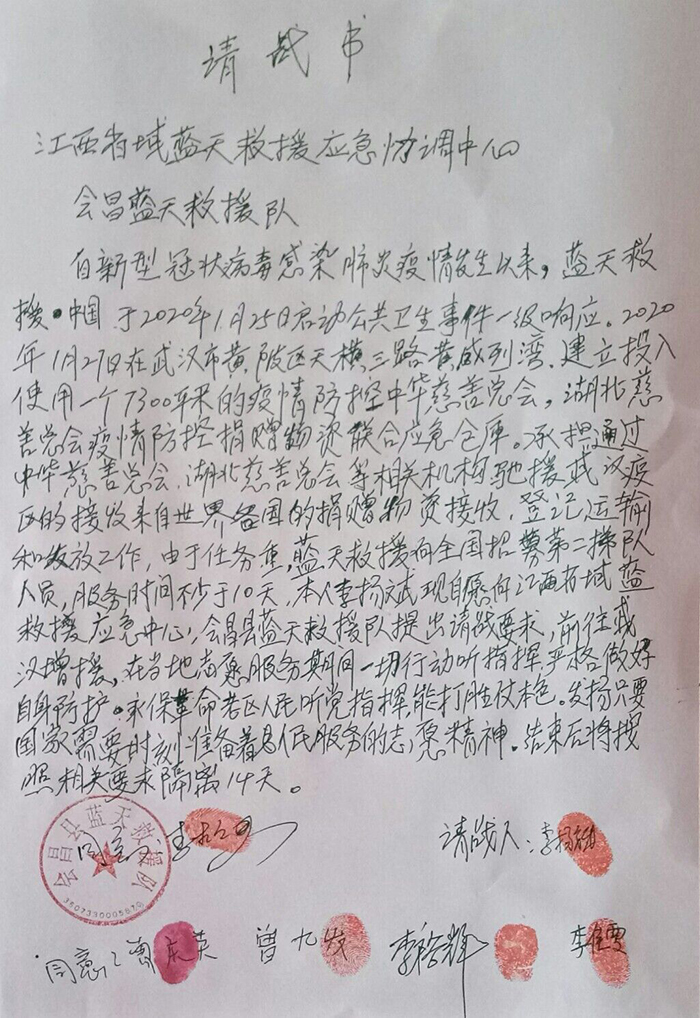 请战书
江西省域蓝天救援应急协调中心
会昌蓝天救援队
自新型冠状病毒感染肺炎疫情发生以来，蓝天救
援·中国于2020年1月25日启动公共卫生事件一级响应。2020
年1月27日在武汉市黄陂区天横三路黄威列湾、建立投入
使用一个7300平米的疫情防控中华慈善总会，湖北慈
善总会疫情防控捐赠物资联合应急仓库。承担通过
中华慈善总会、湖北慈善总会等相关机构驰援武汉疫
区的接收来自世界各国的捐赠物资接收、登记、运输
和发放工作，由于任务重，蓝天救援向全国招募第二梯队
人员，服务时间不少于10天，本人李扬斌现自愿向江西省域蓝
救援应急中心，会昌县蓝天救援队提出请战要求，前往武
汉增援，在当地志愿服务期间一切行动听指挥，严格做好
自身防护。永保革命老区人民听党指挥，能打胜仗本色。发扬只要
国家需要时刻准备着为人民服务的志愿精神。结束后将按
照相关要求隔离14天。
会昌县蓝天救援队
同意 李
请战人：李扬斌
同意：曾庆英 曾九发 李裕辉 李